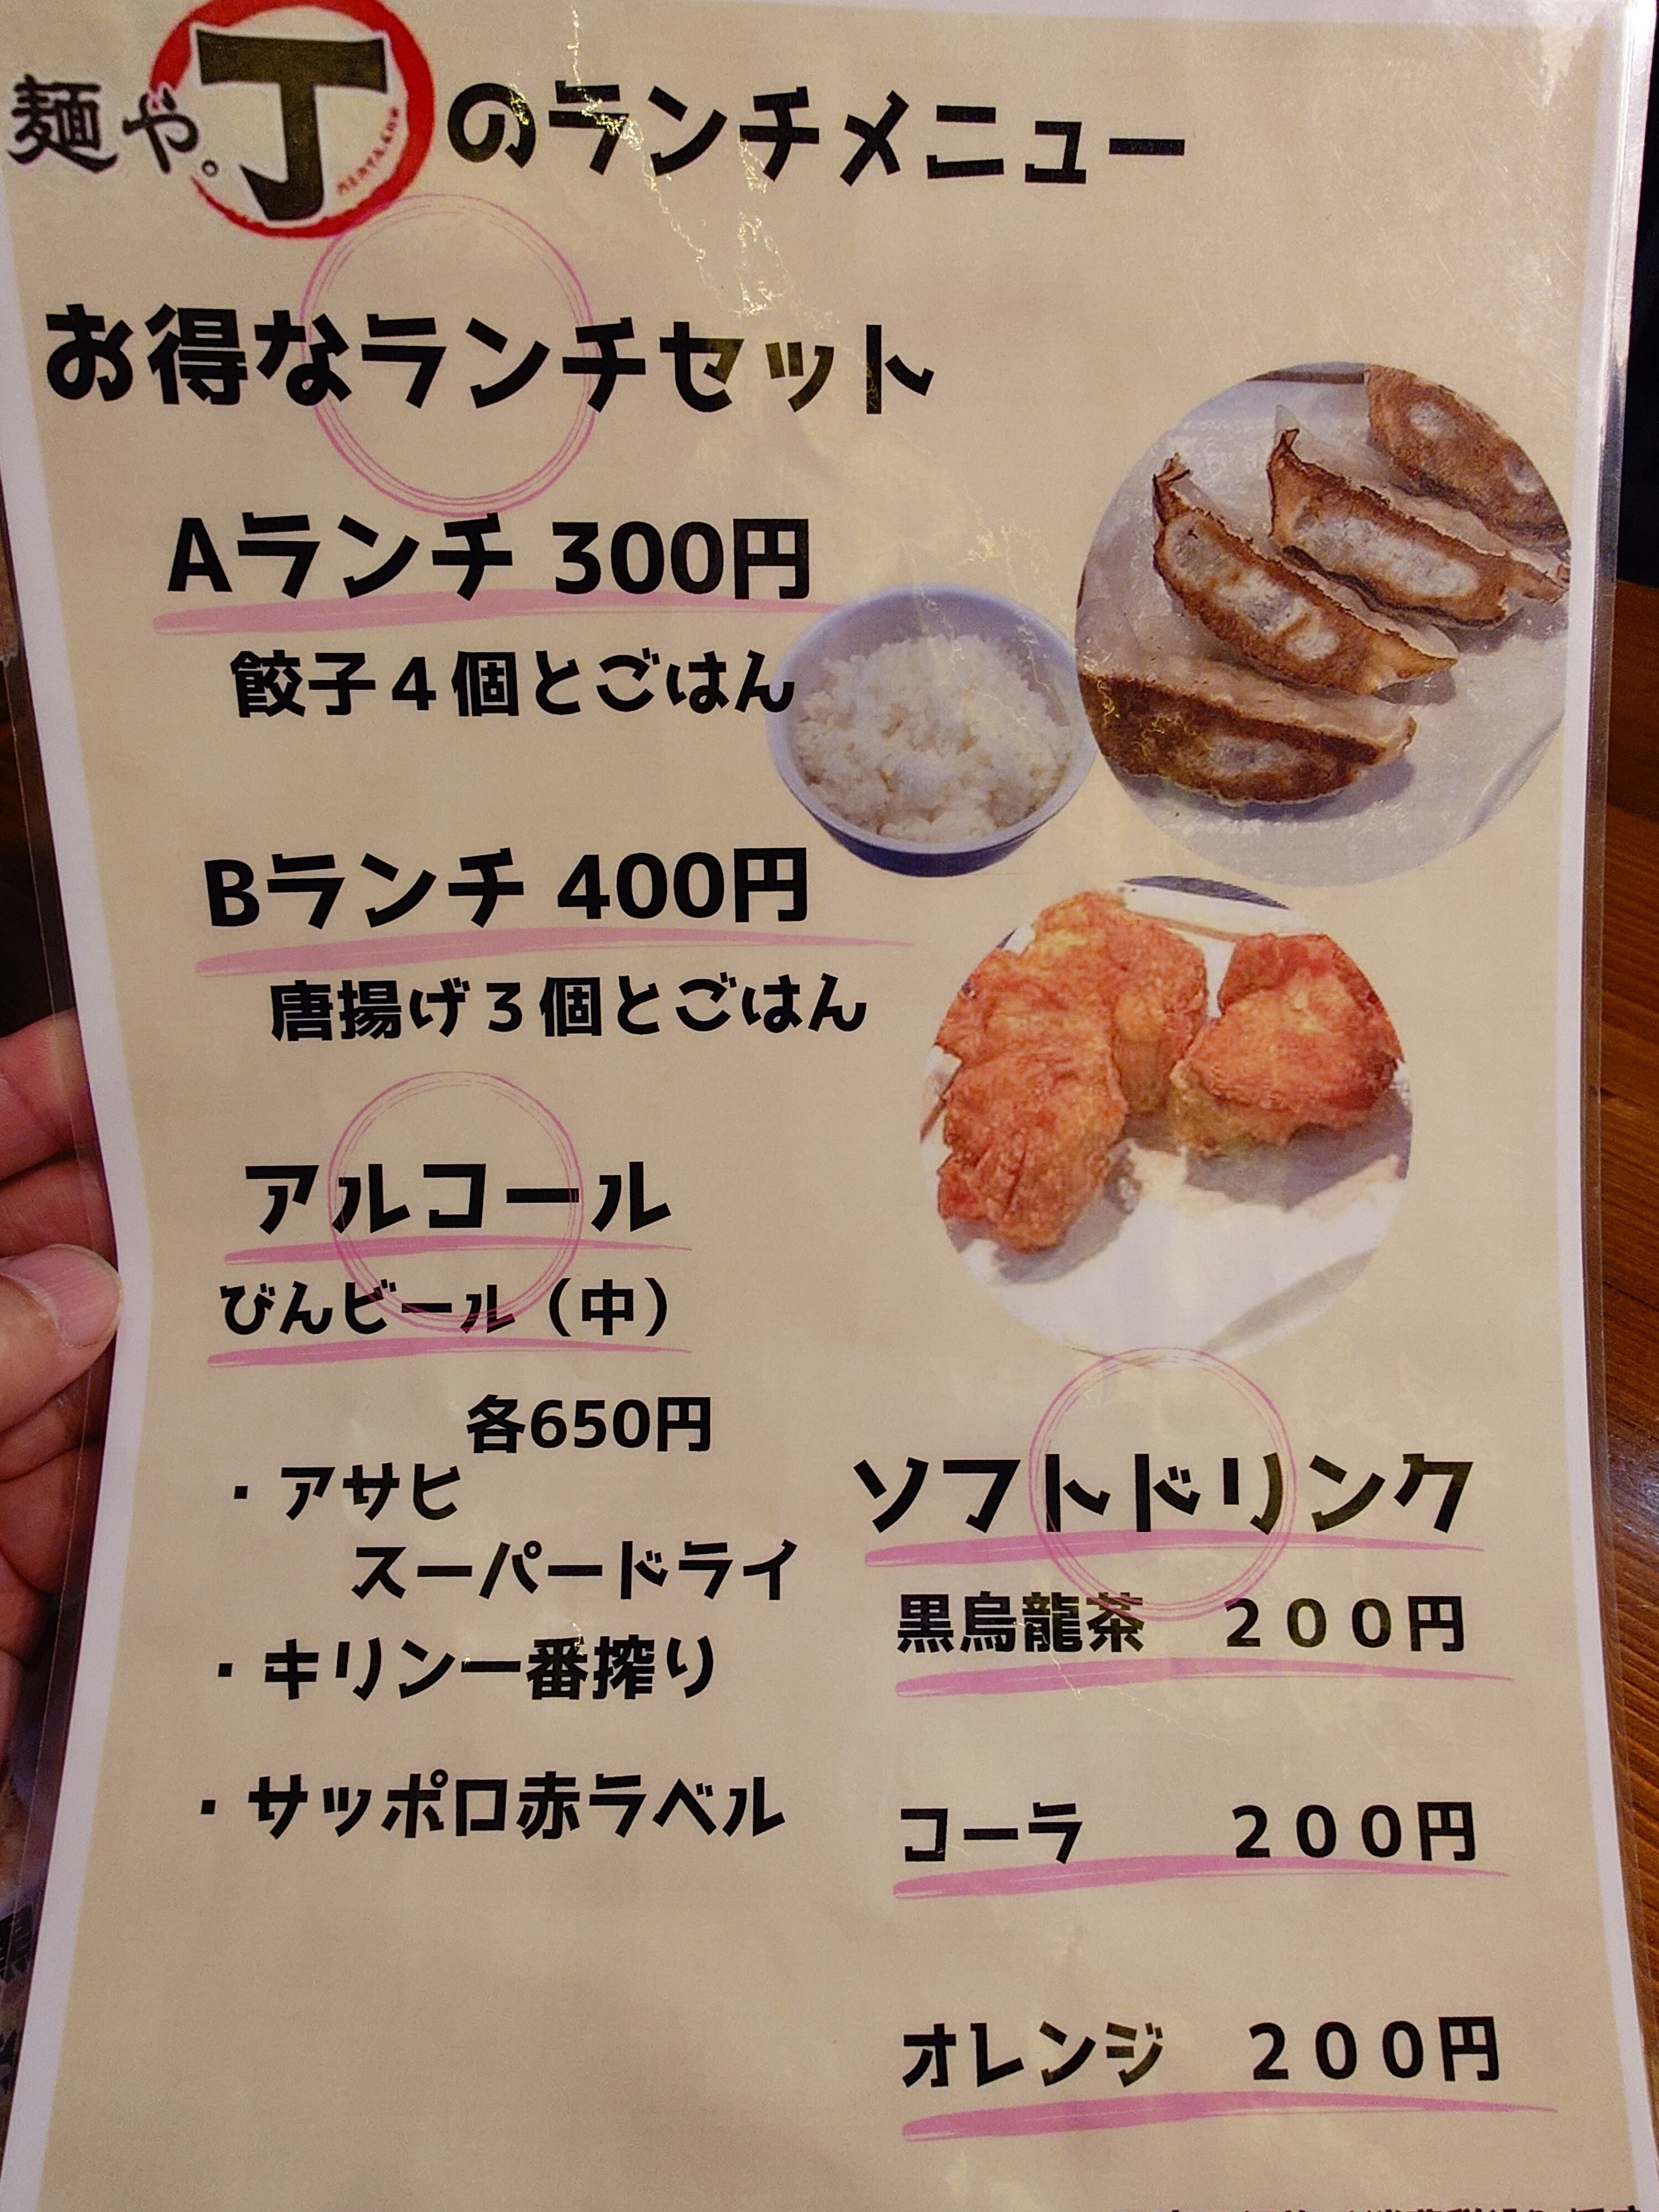 麺や。丁のランチメニュー
お得なランチセット
Aランチ 300円
餃子４個とごはん
Bランチ 400円
唐揚げ３個とごはん
アルコール
びんビール（中）
各650円
・アサヒ
スーパードライ
・キリン一番搾り
・サッポロ赤ラベル
ソフトドリンク
黒烏龍茶 ２００円
コーラ ２００円
オレンジ ２００円